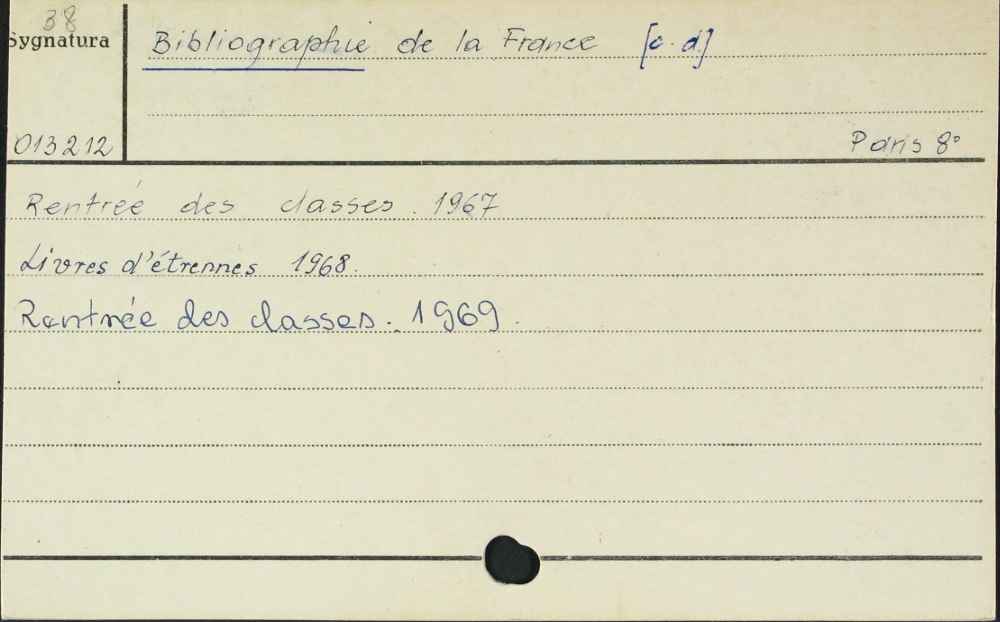 38
Sygnatura
Bibliographie de la France [c. d.]
013212
Paris 8°
Rentrée des classes. 1967
Livres d'étrennes 1968.
Rentrée des classes. 1969.